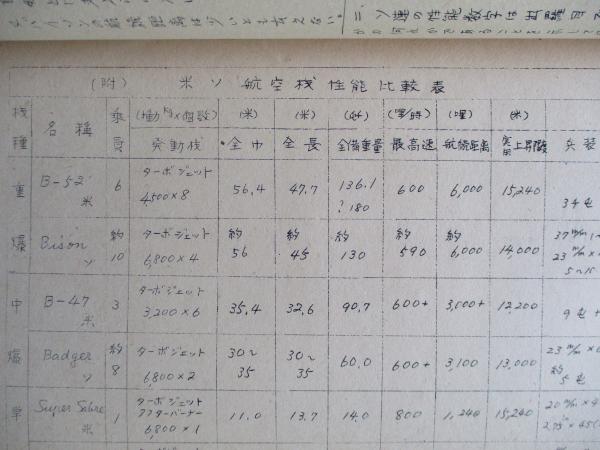 三. ソ連の性能数字は出羅目で
(附) 米ソ航空機性能比較表
機種 名稱 乗員 (動Kgx個数) 発動機 (米) 全巾 (米) 全長 (瓲) 全備重量 (哩/時) 最高速 (哩) 航続距離 (米) 実用上昇限 兵装
重 B-52 米 6 ターボジェット 4500×8 56.4 47.7 136.1 ?180 600 6,000 15,240 34屯
爆 Bison ソ 約10 ターボジェット 6,800×4 約56 約45 約130 約590 約6,000 14,000 23
中 B-47 米 3 ターボジェット 3,200×6 35.4 32.6 90.7 600+ 12,200 9屯
爆 Badger ソ 約8 ターボジェット 6,800×2 30~35 30~35 60.0 600+ 3,100 13,000 23 約5屯
単 Super Sabre 米 1 ターボジェット アフターバーナー 6,800×1 11.0 13.7 14.0 800 1,240 15,240 20